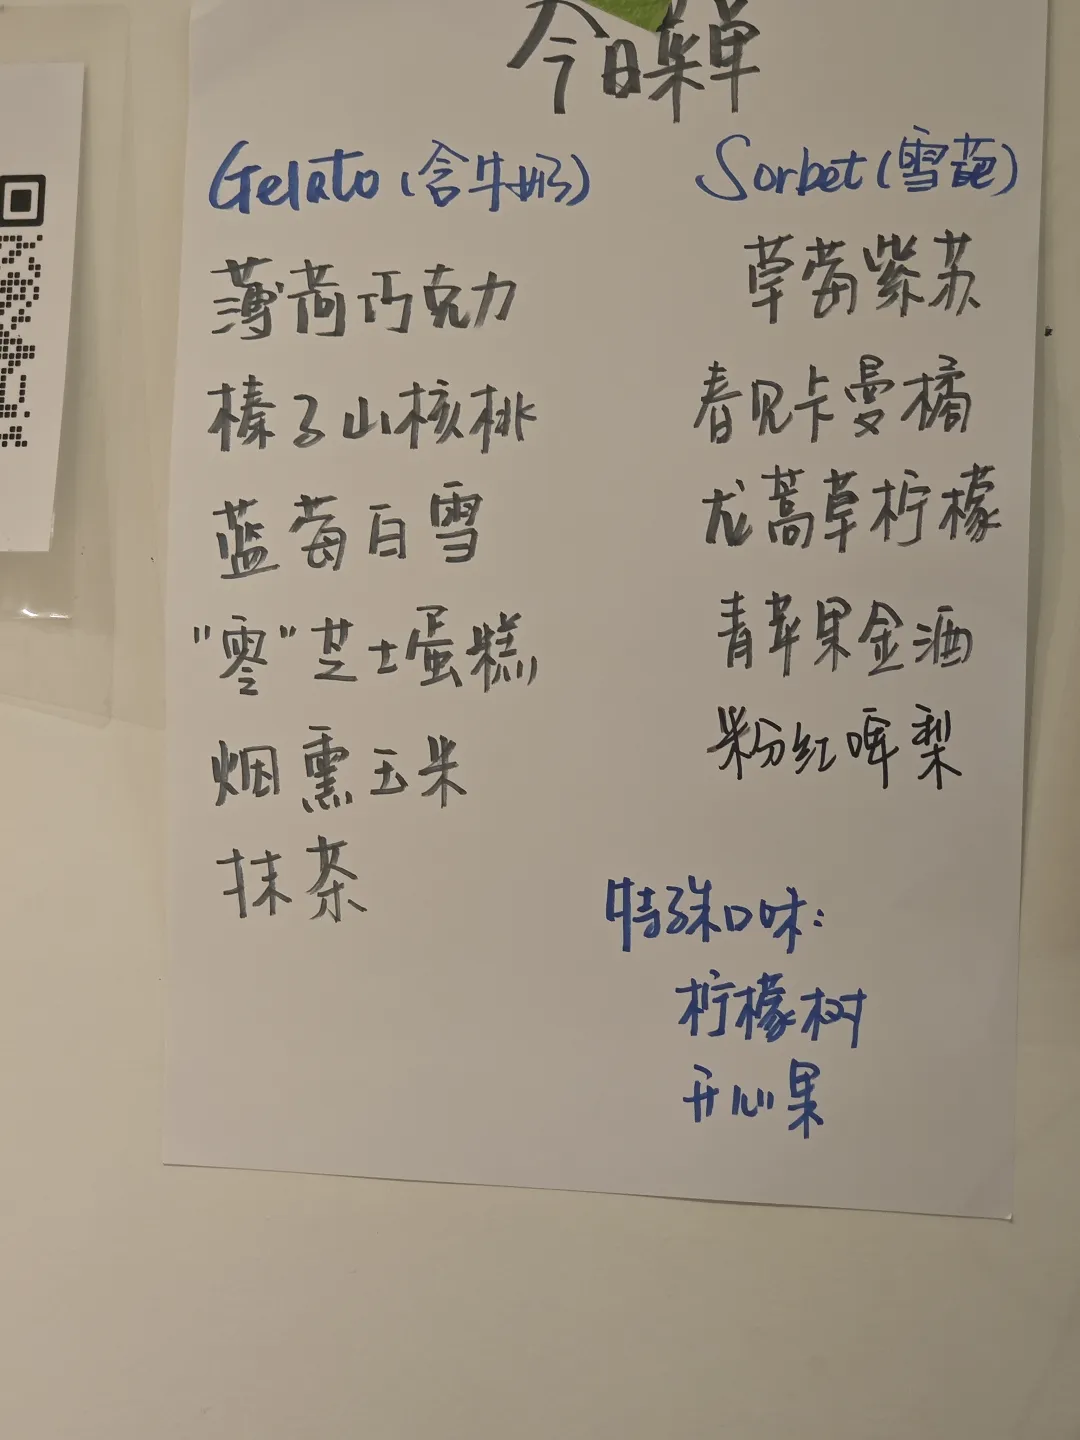 今日菜单
Gelato(含牛奶)
薄荷巧克力
榛子山核桃
蓝莓白雪
"零"芝士蛋糕
烟熏玉米
抹茶
Sorbet(雪葩)
草莓紫苏
春见卡曼橘
龙蒿草柠檬
青苹果金酒
粉红啤梨
特殊口味:
柠檬树
开心果